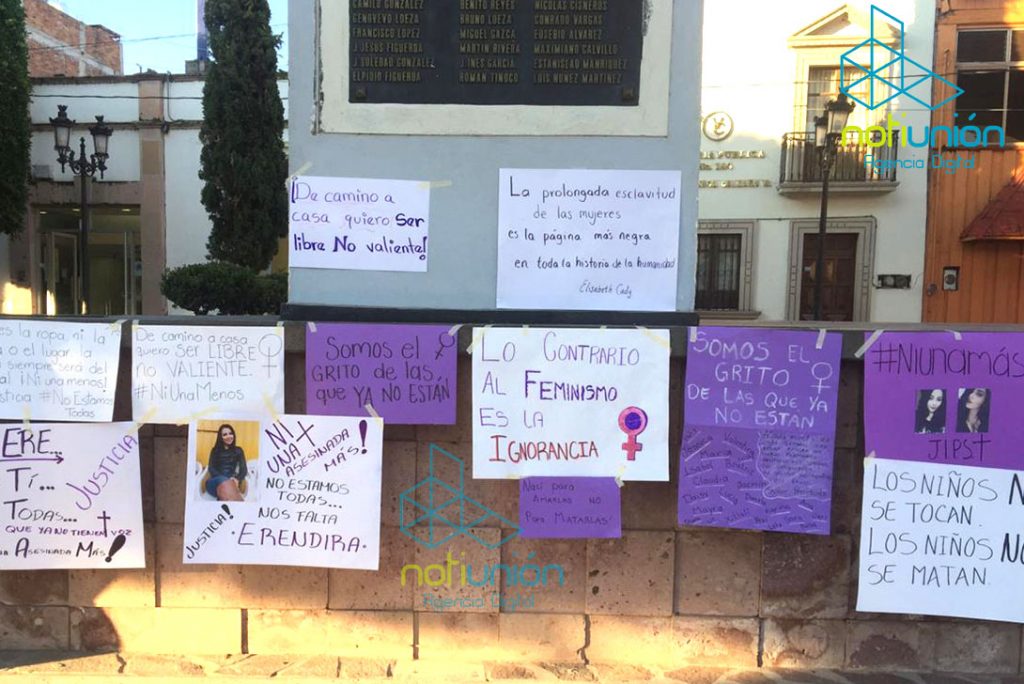 CAMILO GONZALEZ
GENOVEVO LOEZA
FRANCISCO LOPEZ
J JESUS FIGUEROA
J SOLEDAD GONZALEZ
ELPIDIO FIGUEROA
BENITO REYES
BRUNO LOEZA
MIGUEL GAZCA
MARTIN RIVERA
J INES GARCIA
ROMAN TINOCO
NICOLAS CISNEROS
CONRADO VARGAS
EUSEBIO ALVAREZ
MAXIMIANO CALVILLO
ESTANISLAO MANRIQUEZ
LUIS NUÑEZ MARTINEZ
notiunión
Agencia Digital
¡De camino a
casa quiero Ser
libre No valiente!
La prolongada esclavitud
de las mujeres
es la página más negra
en toda la historia de la humanidad
Elisabeth Cady
es la ropa, ni la
o el lugar la
siempre será del
¡Ni una menos!
#No Estamos
Todas
De camino a casa
quiero Ser LIBRE
no VALIENTE.
#NiUnaMenos
Somos el
GRITO de las
que YA NO ESTÁN
LO CONTRARIO
AL FEMINISMO
ES LA
IGNORANCIA
SOMOS EL
GRITO
DE LAS QUE YA
NO ESTAN
#Niunamás
J.I.P.S.T
ERE...
Tí...
TODAS...
QUE YA NO TIENEN VOZ
ASESINADA MÁS!
JUSTICIA
NI
UNA
ASESINADA
MÁS!
NO ESTAMOS
TODAS...
NOS FALTA
·ERENDIRA·
¡JUSTICIA!
Nací para
AMARLAS NO
Para MATARLAS!
LOS NIÑOS N
SE TOCAN.
LOS NIÑOS NO
SE MATAN.
notiunión
Agencia Digital